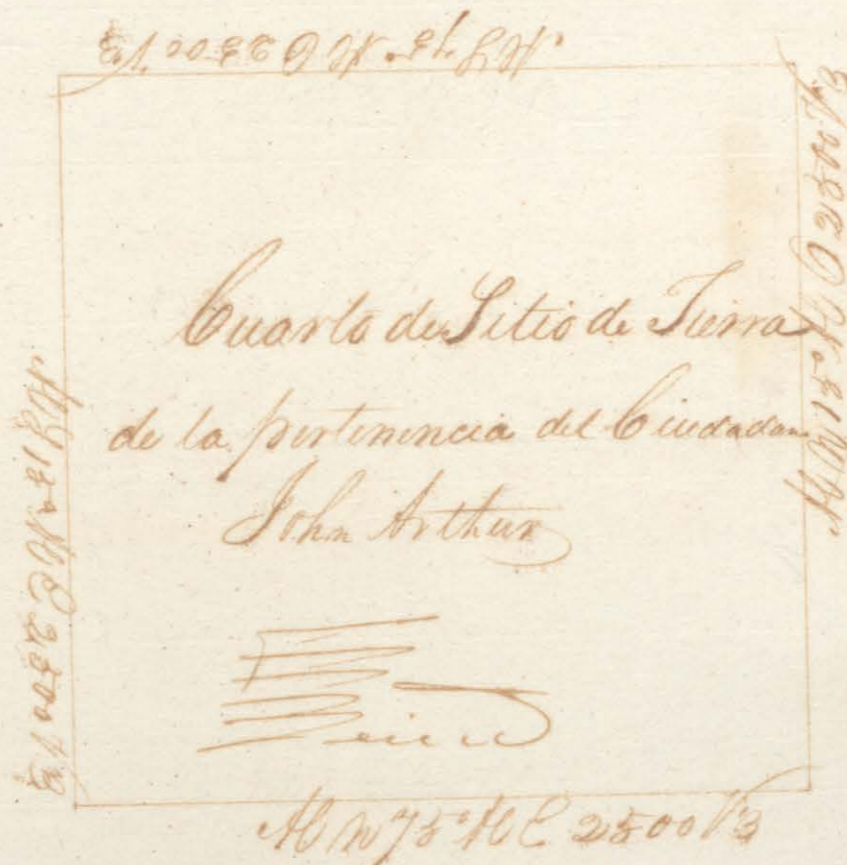 Al S 75° Al O 2500 Vs
Al N 15° Al O 2500 Vs
Cuarto de Sitio de Tierra
de la pertenencia del Ciudadano
John Arthur
Al S 15° Al E 2500 Vs
Al N 75° Al E 2500 Vs